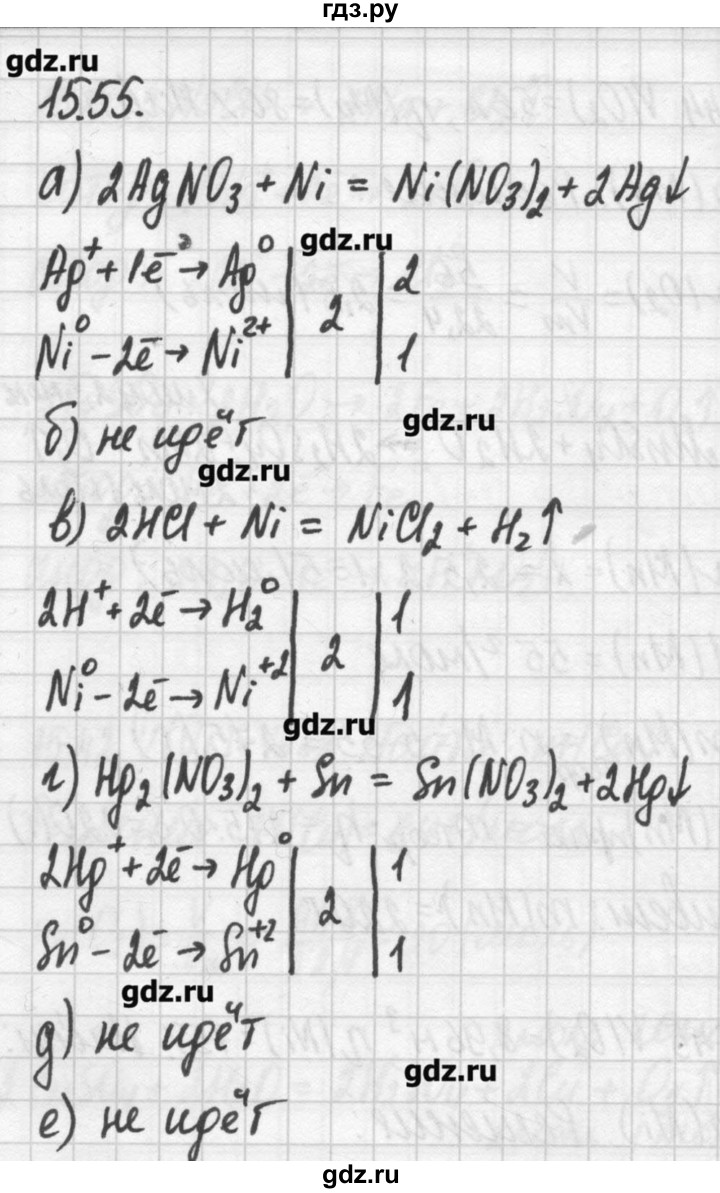 гдз.ру
gdz.ru
15.55.
а) 2AgNO₃ + Ni = Ni(NO₃)₂ + 2Ag↓
gdz.ru
Ag⁺ + 1ē → Ag⁰ | 2 | 2
Ni⁰ - 2ē → Ni²⁺ | 1
gdz.ru
б) не идёт
gdz.ru
в) 2HCl + Ni = NiCl₂ + H₂↑
2H⁺ + 2ē → H₂⁰ | 2 | 1
Ni⁰ - 2ē → Ni⁺² | 1
gdz.ru
г) Hg₂(NO₃)₂ + Sn = Sn(NO₃)₂ + 2Hg↓
2Hg⁺ + 2ē → Hg⁰ | 2 | 1
Sn⁰ - 2ē → Sn⁺² | 1
gdz.ru
д) не идёт
gdz.ru
е) не идёт
gdz.ru